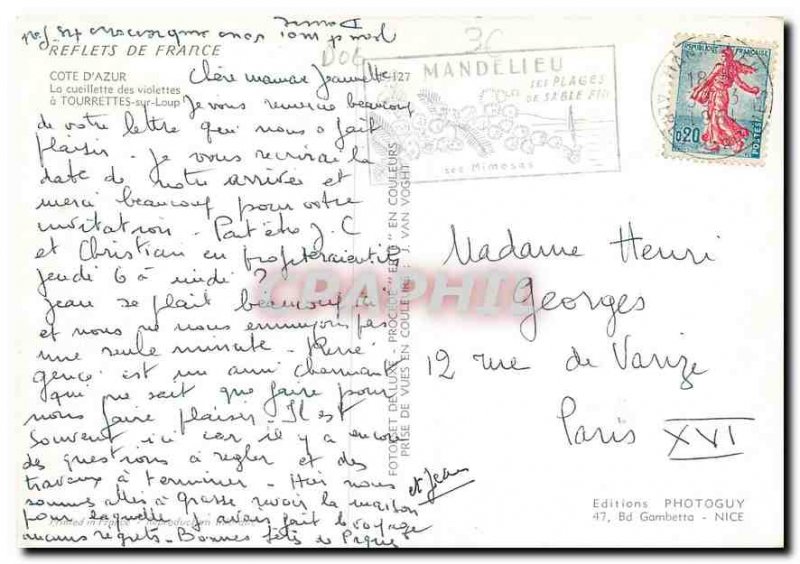 REFLETS DE FRANCE
COTE D'AZUR
La cueillette des violettes
à TOURRETTES-sur-Loup
127
MANDELIEU
SES PLAGES
DE SABLE FIN
ses Mimosas
REPUBLIQUE FRANÇAISE
0,20
POSTES
Chère maman Jeannette
Je vous remercie beaucoup
de votre lettre qui nous a fait
plaisir. Je vous recrirai la
date de notre arrivée et
merci beaucoup pour votre
invitation. Peut être J. C
et Christian en profiteraient ils
jeudi 6 à midi ?
Jean se plait beaucoup ici
et nous ne nous ennuyons pas
une seule minute. Pierre
est un ami charmant
qui ne sait que faire pour
nous faire plaisir. Il est
souvent ici car il y a encore
des questions à régler et des
travaux à terminer. Hier nous
sommes allés à Grasse revoir la maison
pour laquelle j'avais fait le voyage
sans regrets. Bonnes fêtes de Pâques
et Jean
Madame Henri
Georges
12 rue de Varize
Paris XVI
CPAPHIL
FOTOGSET DE LUXE - PROCEDE EN COULEURS
PRISE DE VUES EN COULEURS : J. VAN VOGHT
Printed in France - Reproduction
Editions PHOTOGUY
47, Bd Gambetta - NICE